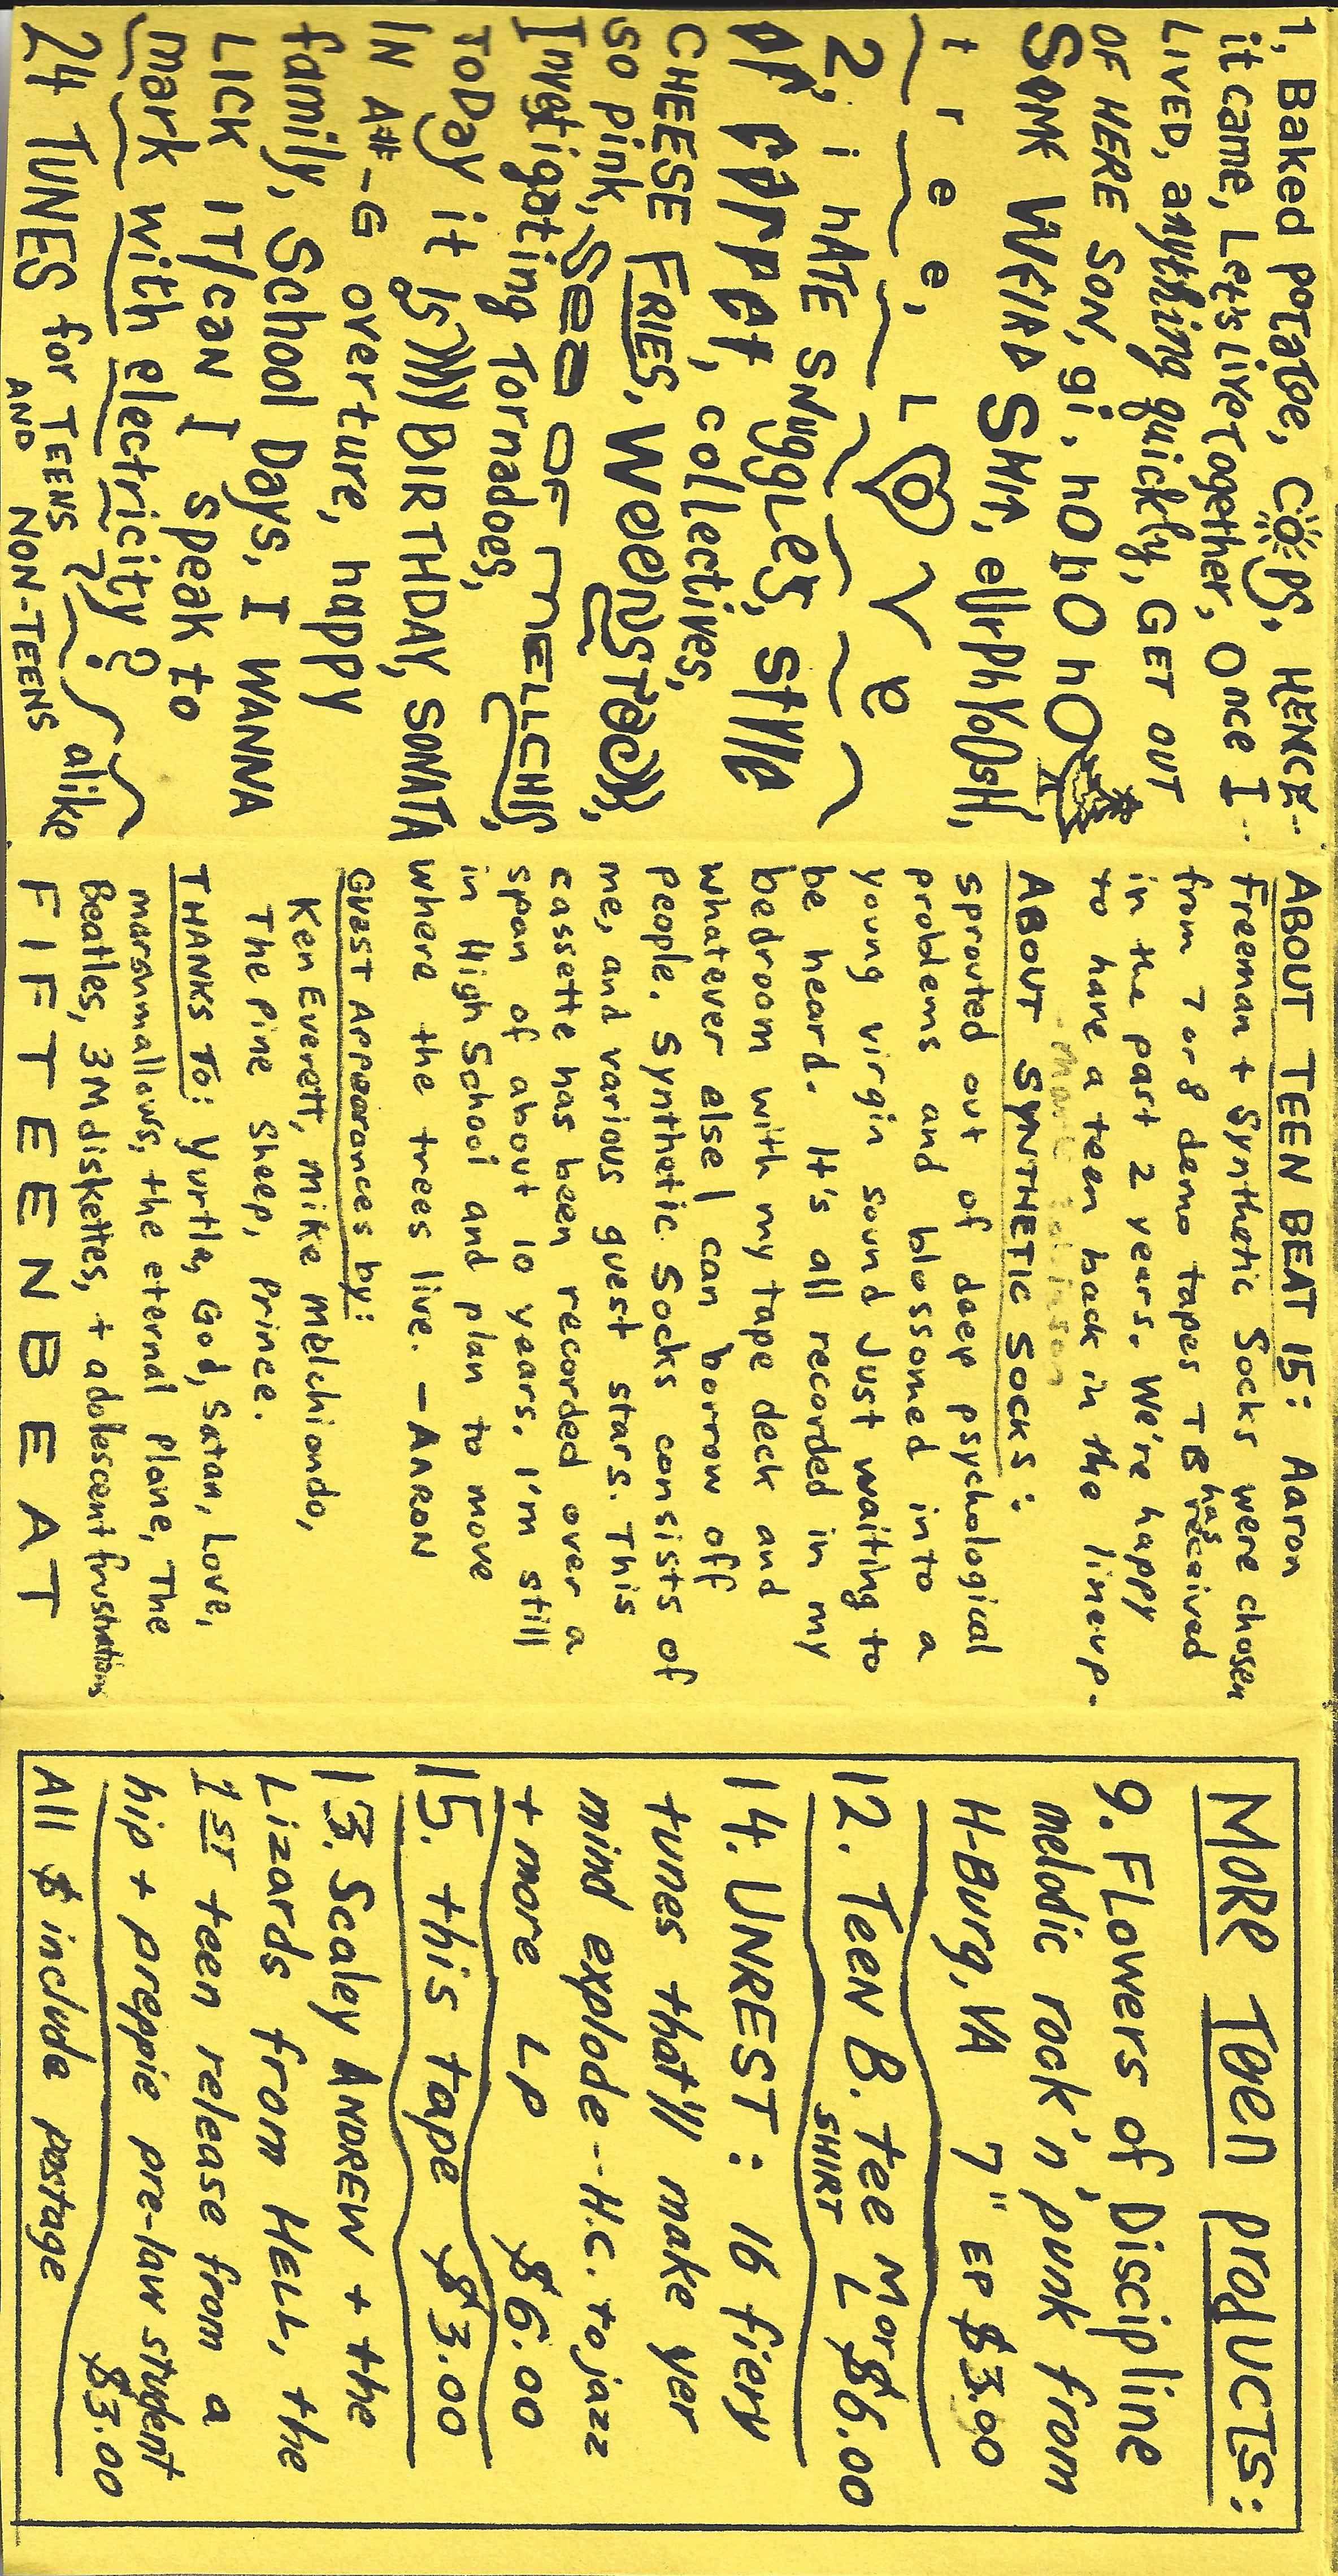 1. Baked potatoe, COPS, HENCE--
it came, Let's live together, Once I --
LIVED, anything quickly, GET OUT
OF HERE SON, gi, hObOhO
SOME WEIRD SHIT,
t r e e, L O V e
2. i hATE SNUGGLES, style
OF CARPET, collectives,
CHEESE FRIES, WeenSTOCK,
so pink, Sea OF MELLCHIS,
Investigating Tornadoes,
TODay it Is BIRTHDAY, SONATA
IN A#-G overture, happy
family, School Days, I WANNA
LICK IT/can I speak to
mark with electricity?
24 TUNES for TEENS AND NON-TEENS alike
ABOUT TEEN BEAT 15: Aaron
Freeman + Synthetic Socks were chosen
from 7 or 8 demo tapes TB has received
in the past 2 years. We're happy
to have a teen back in the lineup.
- Mark Robinson
ABOUT SYNTHETIC SOCKS:
sprouted out of deep psychological
problems and blossomed into a
young virgin sound Just waiting to
be heard. It's all recorded in my
bedroom with my tape deck and
whatever else I can borrow off
people. Synthetic Socks consists of
me, and various guest stars. This
cassette has been recorded over a
span of about 10 years. I'm still
in High School and plan to move
where the trees live. - AARON
GUEST APPEARANCES by:
Ken Everett, mike melchiondo,
The Pine Sheep, Prince.
THANKS TO: Yurtle, God, Satan, Love,
marsnmallows, the eternal plane, The
Beatles, 3M diskettes, + adolescent frustrations
FIFTEENBEAT
MORE Teen PRODUCTS:
9. FLowers of Discipline
melodic rock'n'punk from
H-Burg, VA 7" EP $3.00
12. Teen B. tee SHIRT M or L $6.00
14. UNREST: 16 fiery
tunes that'll make yer
mind explode--H.C. to jazz
+ more LP $6.00
15. this tape $3.00
13. Scaley ANDREW + the
Lizards from HELL, the
1ST teen release from a
hip + preppie pre-law student
$3.00
All $ include postage